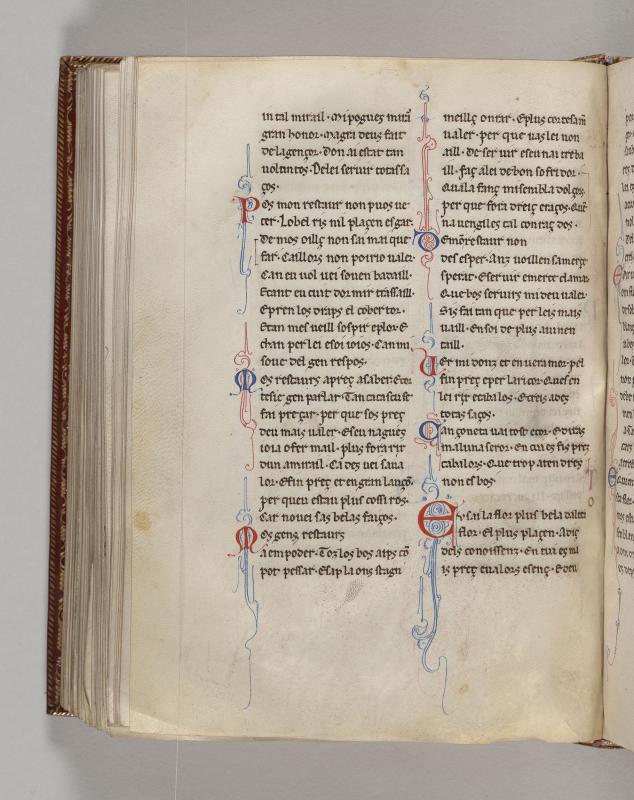 in tal mirail · Mi pogues mirar
gran honor · Magra deus fait
de lagençor · Don ai estat tan
volentos · De lei servir totas sa
ços ·
Pos mon restaur non puos ve
cer · Lobel ris nil plaçen esgar ·
De mos oillç non sai mai que
far · Caillors non poirio valer ·
Can eu vol vei soven badaill ·
Et ant eu cuit dormir trassaill ·
E pren los draps el cobertor ·
Et an mes veill sospir e plor · E
chan per lei esoi ioios · Can mi
sove del gen respos ·
Mos restaurs apreç asaber · E cor
tesie gen parlar · Tan catascust
fai preçar · per que sos preç
deu mais valer · E seu nagues
ioia o fer mail · plus fora rir
dun amirail · Ca des vei sa va
lor · E fin preç et en gran lanço ·
per queu estau plus cossiros ·
Car no vei sas belas faiços ·
Mos gens restaurs
a em poder · Toz los bos aips cō
pot pessar · El ap la ons
meillç onrar · E plus cortesam
valer · per que vas lei non
aill · De servir e seu nai treba
ill · faç a lei de bon sofridor ·
Qual a fanç mi sembla dolços ·
per que fora dreiç eraços · Que
na ven giles tal contraç dos ·
De mō restaur non
des esper · Anz voill en sa merçe
sperar · E servir e merce clamar
Que bos servirs mi deu valer ·
Si s fai tan que per leis mais
vaill · En soi de plus avinen
taill ·
Ver mi donz et en vera mor · pel
fin preç e per la ricor · Ques en
lei rir e cabalos · E creis ades
totas saços ·
Cançoneta vai tost e cor · E diras
mal una seror · En cui es fis preç
cabalors · Que trop aten dreç
non es bos ·
Ey sai la flor plus bela dal
flor · El plus plaçen · A diç
dels conoissenz · En cui es mi
is preç e valors e senç · E deu